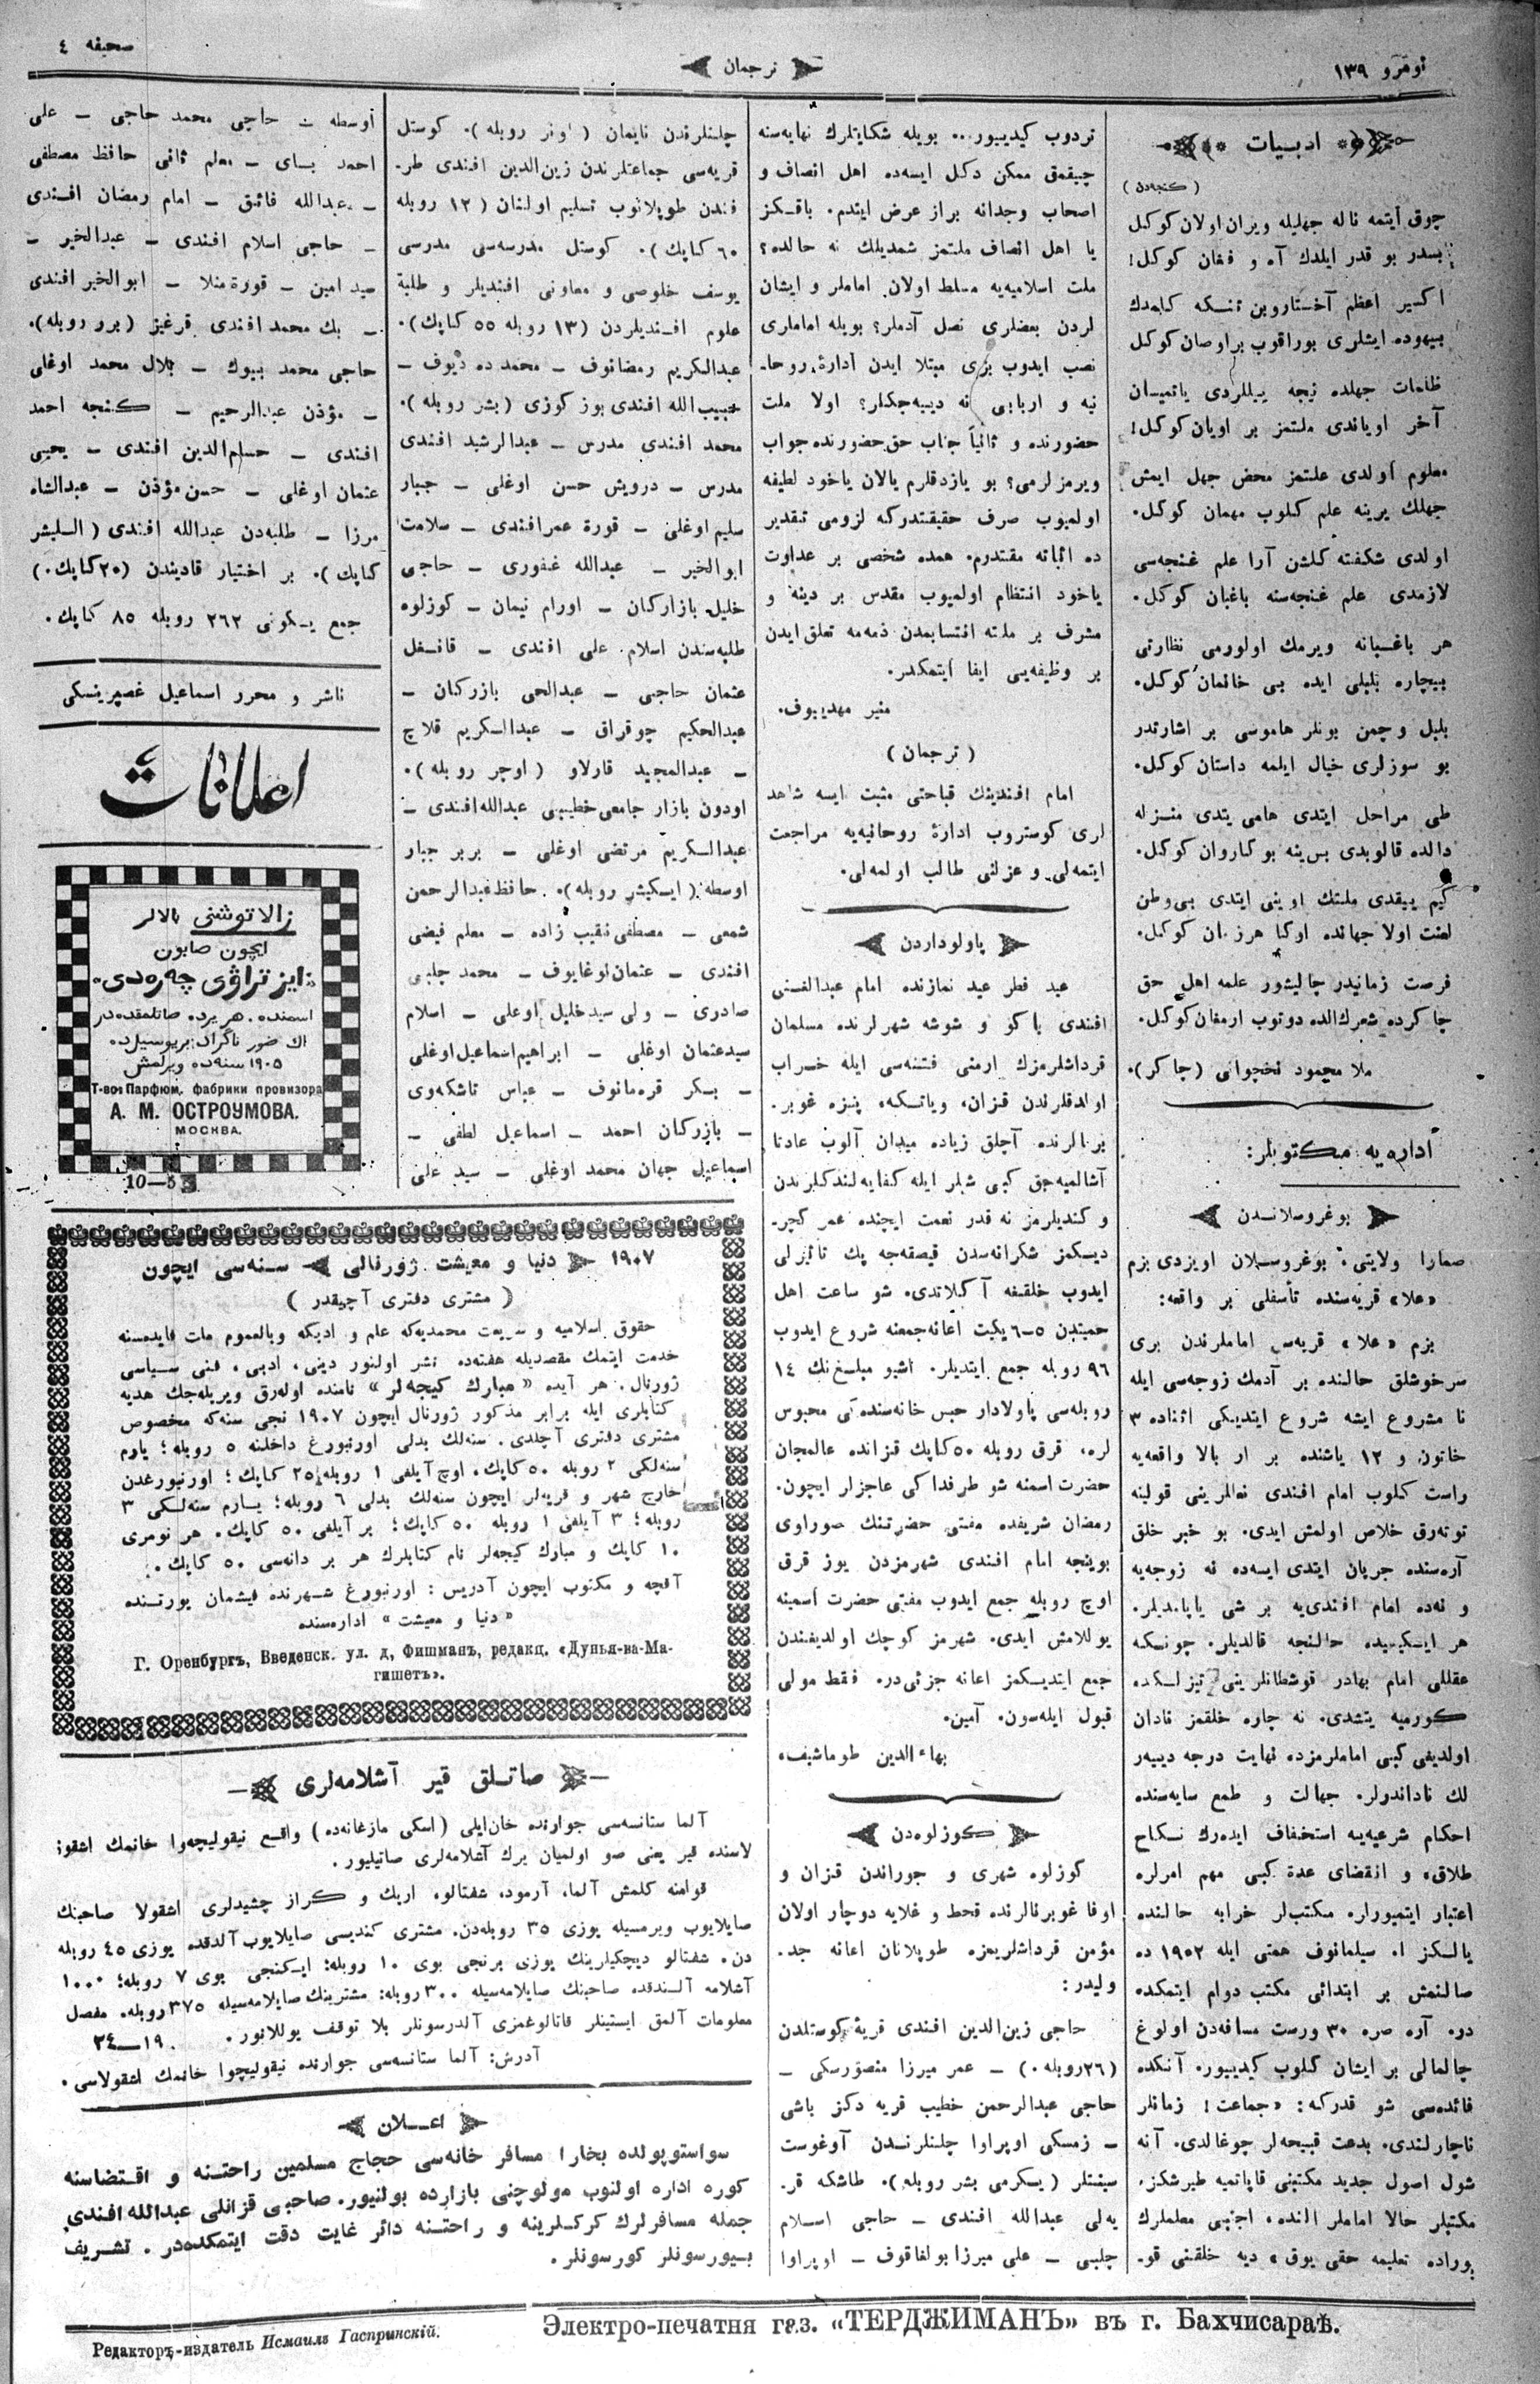 نومرو ١٣٩
ترجمان
صحيفه ٤
ادبيات
(كنجه‌دن)
چوق ايتمه ناله جهليله ويران اولان كوكل
بسدر بو قدر ايلدك آه و فغان كوكل!
بيهوده ايشلرى بوراقوب براوصان كوكل
ظلمات جهلده نيجه ييللردى ياتميسان
آخر اوياندى ملتمز بر اويان كوكل!
معلوم اولدى علتمز محض جهل ايمش
جهلك يرينه علم كلوب مهمان كوكل.
اولدى شكفته كلشن آرا علم غنجه‌سى
لازمدى علم غنجه‌سنه باغبان كوكل.
هر باغبانه ويرمك اولورمى نظارتى
بيچاره بلبلى ايده بى خانمان كوكل.
بلبل و چمن بونلر هاموسى بر اشارتدر
بو سوزلرى خيال ايلمه داستان كوكل.
طى مراحل ايتدى هامى يتدى منزله
دالده قالوبدى بس‌ينه بو كاروان كوكل.
كيم ييقدى ملتك اوينى ايتدى بى‌وطن
لعنت اولا جهانده اوكا هرزمان كوكل.
فرصت زمانيدر چاليشور علمه اهل حق
چاكرده شعرك‌الده دوتوب ارمغان كوكل.
ملا محمود نخجوانى (چاكر).
اداره‌يه مكتوبلر:
بوغروسلاندن
صمارا ولايتى، بوغروسلان اويزدى بزم
«علا» قريه‌سنده تأسفلى بر واقعه:
بزم «علا» قريه‌سى اماملرندن برى
سرخوشلق حالنده بر آدمك زوجه‌سى ايله
نا مشروع ايشه شروع ايتديكى اثناده ٣
خاتون و ١٢ ياشنده بر ار بالا واقعه‌يه
راست كلوب امام افندى نعللرينى قولينه
توته‌رق خلاص اولمش ايدى. بو خبر خلق
آره‌سنده جريان ايتدى ايسه‌ده نه زوجه‌يه
و نه‌ده امام افندى‌يه بر شى ياپامديلر.
هر ايكيسيده حالنجه قالديلر. چونكه
كورميه يتشدى. نه چاره خلقمز نادان
اولديغى كبى اماملرمزده نهايت درجه دييه‌ر
لك نادانلر. جهالت و طمع سايه‌سنده
احكام شرعيه‌يه استخفاف ايده‌رك نكاح
طلاق، و انقضاى عدة كبى مهم امرلره
اعتبار ايتميورلر. مكتب‌لر خرابه حالنده
يالكز ا. سيلمانوف همتى ايله ١٩٠٢ ده
صالنمش بر ابتدائى مكتب دوام ايتمكده
در. آره صره ٣٠ ورست مسافه‌دن اولوغ
چالمالى بر ايشان كلوب كيدييور. آنكده
فائده‌سى شو قدركه: «جماعت! زمانلر
ناچارلندى. بدعت قبيحه‌لر چوغالدى. آنه
شول اصول جديد مكتبنى قاپاتميه طيرشكز.
مكتبلر حالا اماملر النده. اجنبى معلملرك
بوراده تعليمه حقى يوق» ديه خلقنى قو-
تردوب كيدييور... بويله شكايتلرك نهايه‌سنه
چيقمق ممكن دكل ايسه‌ده اهل انصاف و
اصحاب وجدانه براز عرض ايتدم. باقكز
يا اهل انصاف ملتمز شمديلك نه حالده؟
ملت اسلاميه‌يه مسلط اولان اماملر و ايشان
لردن بعضلرى نصل آدملر؟ بويله اماملرى
نصب ايدوب بزى مبتلا ايدن ادارۀ روحا-
نيه و اربابى نه دييه‌جكلر؟ اولا ملت
حضورنده و ثانياً جناب حق‌حضورنده جواب
ويرمزلرمى؟ بو يازدقلرم يالان ياخود لطيفه
اولميوب صرف حقيقتدركه لزومى تقدير
ده اثباته مقتدرم. همده شخصى بر عداوت
ياخود انتظام اولميوب مقدس بر دينه و
مشرف بر ملته انتسابمدن ذمه‌مه تعلق ايدن
بر وظيفه‌يى ايفا ايتمكدر.
منير مهدييوف.
(ترجمان)
امام افندينك قباحتى مثبت ايسه شاهد
لرى كوستروب ادارۀ روحانيه‌يه مراجعت
ايتمه‌لى و عزلنى طالب اولمه‌لى.
پاولوداردن
عيد فطر عيد نمازنده امام عبدالغنى
افندى باكو و شوشه شهرلرنده مسلمان
قرداشلرمزك ارمنى فتنه‌سى ايله خراب
اولدقلرندن قزان، وياتكه، پنزه غوبر-
نالرنده آچلق زياده ميدان آلوب عادتا
و كنديلرمز نه قدر نعمت ايچنده عمر كچر-
ديكمز شكرانه‌سدن قيصقه‌جه پك تأثيرلى
ايدوب خلقمه آكلاتدى. شو ساعت اهل
حميتدن ٥-٦ يكيت اعانه‌جمعنه شروع ايدوب
٩٦ روبله جمع ايتديلر. اشبو مبلغ‌نك ١٤
روبله‌سى پاولادار حبس خانه‌سنده‌كى محبوس
لره، قرق روبله ٥٠ كاپك قزانده عالمجان
حضرت اسمنه شو طرفداكى عاجزلر ايچون.
رمضان شريفده مفتى حضرتنك صوراوى
بوينجه امام افندى شهرمزدن يوز قرق
اوچ روبله جمع ايدوب مفتى حضرت اسمينه
يوللامش ايدى. شهرمز كوچك اولديغندن
جمع ايتديكمز اعانه جزئى‌در. فقط مولى
قبول ايله‌سون. آمين.
بهاء الدين طوماشيف.
كوزلوه‌دن
كوزلوه شهرى و جوراندن قزان و
اوفا غوبرنالرنده قحط و غلايه دوچار اولان
مؤمن قرداشلريمزه طوپلانان اعانه جد-
وليدر:
حاجى زين‌الدين افندى قريۀ كوستلدن
(٢٦ روبله.) ـ عمر ميرزا منصورسكى ـ
حاجى عبدالرحمن خطيب قريه دكز باشى
ـ زمسكى اوپراوا چلنلرندن آوغوست
سيتنلر (يكرمى بشر روبله). طاشكه قر-
يه‌لى عبدالله افندى ـ حاجى اسلام
چلبى ـ على ميرزا بولغاقوف ـ اوپراوا
چلنلرندن نايمان (اونر روبله). كوستل
قريه‌سى جماعتلرندن زين‌الدين افندى طر-
فندن طوپلانوب تسليم اولنان (١٢ روبله
٦٠ كاپك). كوستل مدرسه‌سى مدرسى
يوسف خلوصى و معاونى افنديلر و طلبۀ
علوم افنديلردن (١٣ روبله ٥٥ كاپك).
عبدالكريم رمضانوف ـ محمد ده ديوف ـ
حبيب‌الله افندى بوز كوزى (بشر روبله).
محمد افندى مدرس ـ عبدالرشيد افندى
مدرس ـ درويش حسن اوغلى ـ جبار
سليم اوغلى ـ قورة عمرافندى ـ سلامت
ابوالخير ـ عبدالله غفورى ـ حاجى
خليل بازاركان ـ اورام نيمان ـ كوزلوه
طلبه‌سندن اسلام على افندى ـ قافىغل
عثمان حاجى ـ عبدالحى بازركان ـ
عبدالحكيم چوقراق ـ عبدالكريم قلاچ
ـ عبدالمجيد قارلاو (اوچر روبله).
اودون بازار جامعى خطيبى عبدالله‌افندى ـ
عبدالكريم مرتضى اوغلى ـ بربر جبار
اوسطه (ايكيشر روبله). حافظ عبدالرحمن
شمعى ـ مصطفى نقيب زاده ـ معلم فيضى
افندى ـ عثمان اوغايوف ـ محمد چلبى
صادرى ـ ولى سيد خليل اوغلى ـ اسلام
سيدعثمان اوغلى ـ ابراهيم اسماعيل اوغلى
ـ بكر قره‌مانوف ـ عباس تاشكه‌وى
ـ بازركان احمد ـ اسماعيل لطفى ـ
اسماعيل جهان محمد اوغلى ـ سيد على
اوسطه ـ حاجى محمد حاجى ـ على
احمد باى ـ معلم ثانى حافظ مصطفى
ـ عبدالله فائق ـ امام رمضان افندى
ـ حاجى اسلام افندى ـ عبدالخير ـ
سيد امين ـ قورة‌منلا ـ ابوالخير افندى
ـ بك محمد افندى قرغيز (برر روبله).
حاجى محمد بيوك ـ بلال محمد اوغلى
ـ مؤذن عبدالرحيم ـ كنجه احمد
افندى ـ حسام‌الدين افندى ـ يحيى
عثمان اوغلى ـ حسن مؤذن ـ عبدالشاه
مرزا ـ طلبه‌دن عبدالله افندى (الليشر
كاپك). بر اختيار قاديندن (٢٠ كاپك.)
جمع يكونى ٢٦٢ روبله ٨٥ كاپك.
ناشر و محرر اسماعيل غصپرينسكى
اعلانات
زالاتوشنى بالالر
ايچون صابون
«ايز تراوى چه‌ره‌دى»
اسمنده. هر يرده صاتلمقده‌در
١٩٠٥ سنه‌ده ويرلمش
Т-во Парфюм. фабрики провизора
А. М. ОСТРОУМОВА.
МОСКВА.
10—3
١٩٠٧ دنيا و معيشت ژورنالى سنه‌سى ايچون
(مشترى دفترى آچيقدر)
حقوق اسلاميه و شريعت محمديه‌كه علم و ادبكه وبالعموم ملت فايده‌سنه
خدمت ايتمك مقصديله هفته‌ده نشر اولنور دينى، ادبى، فنى سياسى
ژورنال. هر آيده «مبارك كيجه‌لر» نامنده اوله‌رق ويريله‌جك هديه
كتابلرى ايله برابر مذكور ژورنال ايچون ١٩٠٧ نجى سنه‌كه مخصوص
مشترى دفترى آچلدى. سنه‌لك بدلى اورنبورغ داخلنه ٥ روبله؛ يارم
سنه‌لكى ٢ روبله ٥٠ كاپك، اوچ آيلغى ١ روبله ٢٥ كاپك؛ اورنبورغدن
خارج شهر و قريه‌لر ايچون سنه‌لك بدلى ٦ روبله؛ يارم سنه‌لكى ٣
روبله؛ ٣ آيلغى ١ روبله ٥٠ كاپك؛ بر آيلغى ٥٠ كاپك. هر نومرى
١٠ كاپك و مبارك كيجه‌لر نام كتابلرك هر بر دانه‌سى ٥٠ كاپك.
آقچه و مكتوب ايچون آدريس: اورنبورغ شهرنده فيشمان يورتنده
«دنيا و معيشت» اداره‌سنده
Г. Оренбургъ, Введенск. ул. д, Фишманъ, редакц. «Дунья-ва-Ма-
гишетъ».
صاتلق قير آشلامه‌لرى
آلما ستانسه‌سى جوارنده خان‌ايلى (اسكى مازغانه‌ده) واقع نيقوليچه‌وا خانمك اشقو-
لاسنده قير يعنى صو اولميان يرك آشلامه‌لرى صاتيليور.
قوامنه كلمش آلما، آرمود، شفتالو، اريك و كراز چشيدلرى اشقولا صاحبنك
صايلايوب ويرمسيله يوزى ٣٥ روبله‌دن. مشترى كنديسى صايلايوب آلدقده يوزى ٤٥ روبله
دن. شفتالو ديچكيلرينك يوزى برنجى بوى ١٠ روبله؛ ايكنجى بوى ٧ روبله؛ ١٠٠٠
آشلامه آلندقده صاحبنك صايلامه‌سيله ٣٠٠ روبله؛ مشترينك صايلامه‌سيله ٣٧٥ روبله. مفصل
معلومات آلمق ايستينلر قاتالوغمزى آلدرسونلر بلا توقف يوللانور. ١٩—٢٤
آدرش: آلما ستانسه‌سى جوارنده نيقوليچوا خانمك اشقولاسى.
اعلان
سواستوپولده بخارا مسافر خانه‌سى حجاج مسلمين راحتنه و اقتضاسنه
كوره اداره اولنوب مولوچنى بازارده بولنيور. صاحبى قزانلى عبدالله افندى
جمله مسافرلرك كركلرينه و راحتنه دائر غايت دقت ايتمكده‌در. تشريف
بيورسونلر كورسونلر.
Редакторъ-издатель Исмаилъ Гаспринскій.
Электро-печатня газ. «ТЕРДЖИМАНЪ» въ г. Бахчисараѣ.